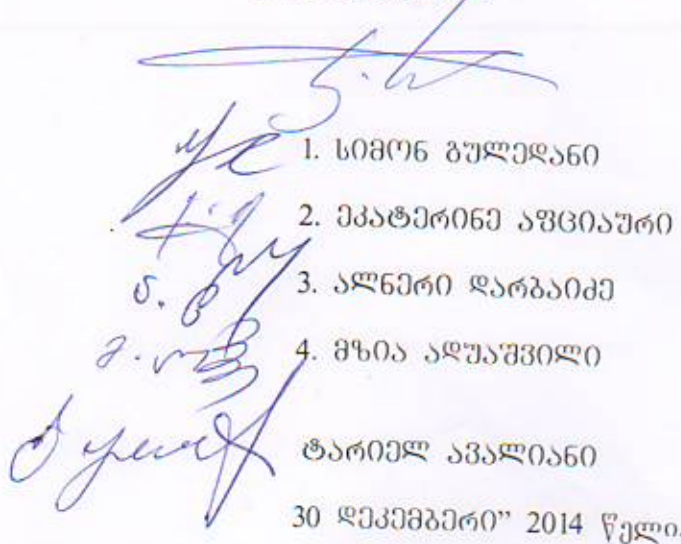 1. სიმონ გულედანი
2. ეკატერინე აფციაური
3. ალნერი დარბაიძე
4. მზია ადუაშვილი
ტარიელ ავალიანი
30 დეკემბერი” 2014 წელი.